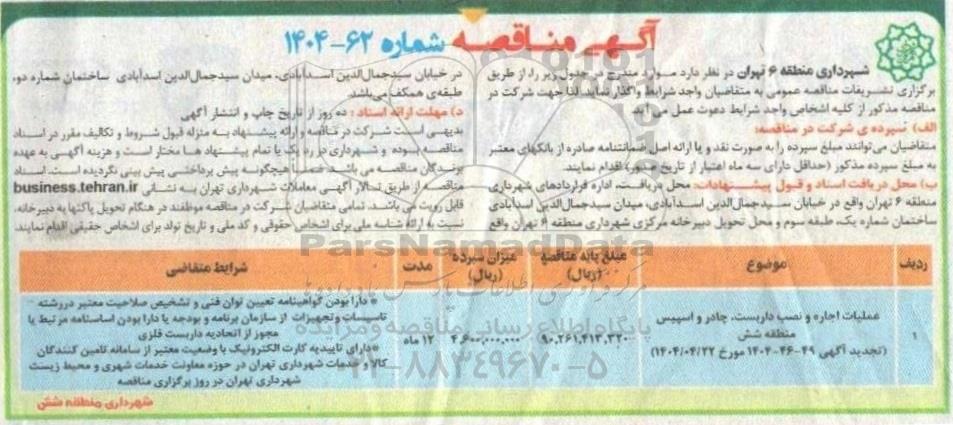 آگهی مناقصه شماره ۶۲-۱۴۰۴
شهرداری منطقه ۶ تهران در نظر دارد موارد مندرج در جدول زیر را، از طریق
برگزاری تشریفات مناقصه عمومی به متقاضیان واجد شرایط واگذار نماید. لذا جهت شرکت در
مناقصه مذکور از کلیه اشخاص واجد شرایط دعوت عمل می آید
الف) سپرده ی شرکت در مناقصه:
متقاضیان می‌توانند مبلغ سپرده را به صورت نقد و یا ارائه اصل ضمانتنامه صادره از بانکهای معتبر
به مبلغ سپرده مذکور (حداقل دارای سه ماه اعتبار از تاریخ صدور) اقدام نمایند.
ب) محل دریافت اسناد و قبول پیشنهادات: محل دریافت، اداره قراردادهای شهرداری
منطقه ۶ تهران واقع در خیابان سیدجمال‌الدین اسدآبادی، میدان سیدجمال‌الدین اسدآبادی
ساختمان شماره یک، طبقه سوم و محل تحویل دبیرخانه مرکزی شهرداری منطقه ۶ تهران واقع
در خیابان سیدجمال‌الدین اسدآبادی، میدان سیدجمال‌الدین اسدآبادی ساختمان شماره دو،
طبقه‌ی همکف می‌باشد.
د) مهلت ارائه اسناد : ده روز از تاریخ چاپ و انتشار آگهی
بدیهی است شرکت در مناقصه و ارائه پیشنهاد به منزله قبول شروط و تکالیف مقرر در اسناد
مناقصه بوده و شهرداری در رد یک یا تمام پیشنهاد ها مختار است و هزینه آگهی به عهده
برندگان مناقصه می باشد. ضمنا هیچگونه پیش پرداختی پیش بینی نگردیده است. اسناد
مناقصه از طریق تالار آگهی معاملات شهرداری تهران به نشانی business.tehran.ir
قابل رویت می باشد. تمامی متقاضیان شرکت در مناقصه موظفند در هنگام تحویل پاکتها به دبیرخانه،
نسبت به ارائه شناسه ملی برای اشخاص حقوقی و کد ملی و تاریخ تولد برای اشخاص حقیقی اقدام نمایند.
ردیف موضوع مبلغ پایه مناقصه (ریال) میزان سپرده (ریال) مدت شرایط متقاضی
۱
عملیات اجاره و نصب داربست، چادر و اسپیس
منطقه شش
(تجدید آگهی ۴۹-۴۶-۱۴۰۴ مورخ ۱۴۰۴/۰۴/۲۲)
۹۰,۲۶۱,۴۱۳,۳۲۰
۴,۶۰۰,۰۰۰,۰۰۰
۱۲ ماه
* دارا بودن گواهینامه تعیین توان فنی و تشخیص صلاحیت معتبر در رشته
تاسیسات و تجهیزات از سازمان برنامه و بودجه یا دارا بودن اساسنامه مرتبط یا
مجوز از اتحادیه داربست فلزی
* دارای تاییدیه کارت الکترونیک با وضعیت معتبر از سامانه تامین کنندگان
کالا و خدمات شهرداری تهران در حوزه معاونت خدمات شهری و محیط زیست
شهرداری تهران در روز برگزاری مناقصه
شهرداری منطقه شش
ParsNamadData
پایگاه اطلاع رسانی مناقصه و مزایده
۰۲۱-۸۸۳۴۹۶۷۰-۵